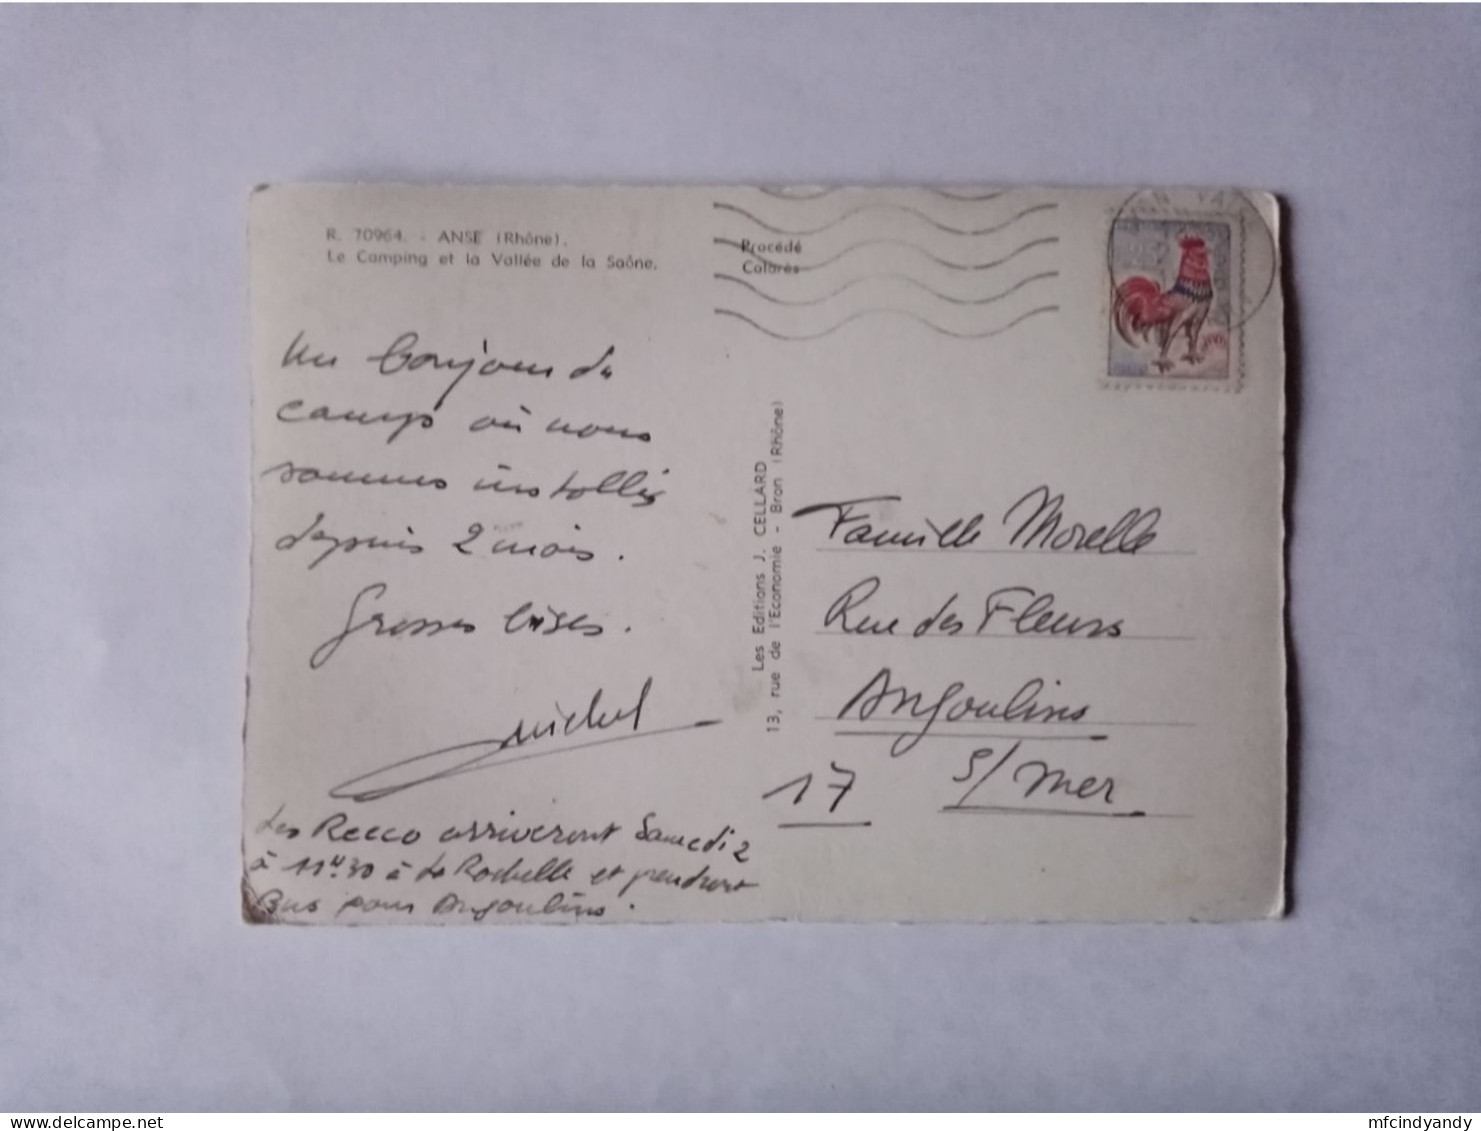 R. 70964. - ANSE (Rhône).
Le Camping et la Vallée de la Saône.
Procédé
Colorés
Un bonjour du
camp où nous
sommes installés
depuis 2 mois.
Grosses bises.
Michel
Les Recco arriveront Samedi 2
à 11H30 à La Rochelle et prendront
Bus pour Angoulins.
Les Editions J. CELLARD
13, rue de l'Economie - Bron (Rhône)
Famille Morelle
Rue des Fleurs
Angoulins
s/mer
17
mfcindyandy